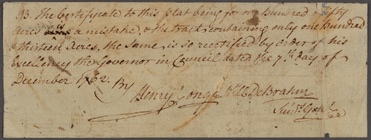 NB. The Certificate to this plat being for one Hundred & fifty
Acres is a mistake, & the tract containing only one Hundred
thirteen Acres, the same is so rectified by order of his
Excellency the Governor in Council dated the 7th Day of
December 1762. By
Henry Yonge & W: DeBrahm
Survrs Genl